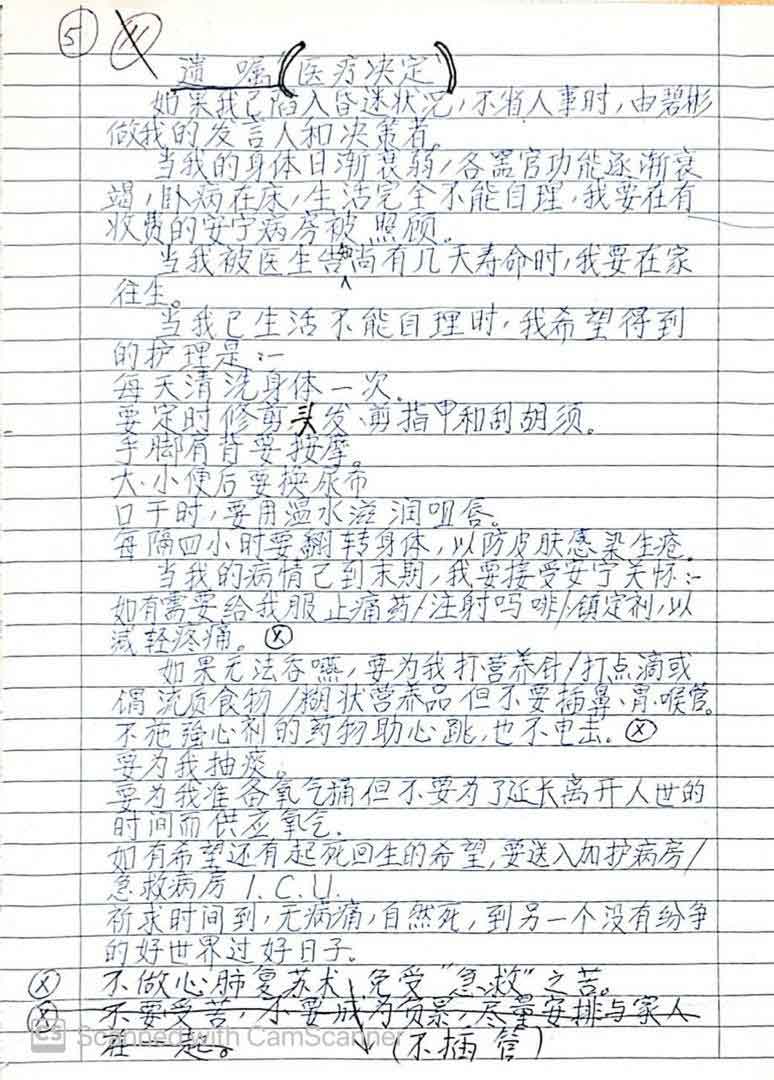 ⑤ 11
遗嘱(医疗决定)
如果我已陷入昏迷状况,不省人事时,由碧彬
做我的发言人和决策者。
当我的身体日渐衰弱/各器官功能逐渐衰
竭,卧病在床,生活完全不能自理,我要在有
收费的安宁病房被照顾。
当我被医生告知尚有几天寿命时,我要在家
往生。
当我已生活不能自理时,我希望得到
的护理是:-
每天清洗身体一次。
要定时修剪头发、剪指甲和刮胡须。
手脚肩背要按摩。
大、小便后要换尿布
口干时,要用温水滋润咀唇。
每隔四小时要翻转身体,以防皮肤感染生疮。
当我的病情已到末期,我要接受安宁关怀:-
如有需要给我服止痛药/注射吗啡/镇定剂,以
减轻疼痛。ⓧ
如果无法吞嚥,要为我打营养针/打点滴或
流质食物/糊状营养品但不要插鼻、胃、喉管。
不施强心剂的药物助心跳,也不电击。ⓧ
要为我抽痰。
要为我准备氧气桶但不要为了延长离开人世的
时间而供应氧气.
如有希望还有起死回生的希望,要送入加护病房/
急救病房 I.C.U.
祈求时间到,无病痛,自然死,到另一个没有纷争
的好世界过好日子。
ⓧ 不做心肺复苏术 免受"急救"之苦。
ⓧ 不要受苦,不要成为负累,尽量安排与家人
在一起。 (不插管)
CS Scanned with CamScanner